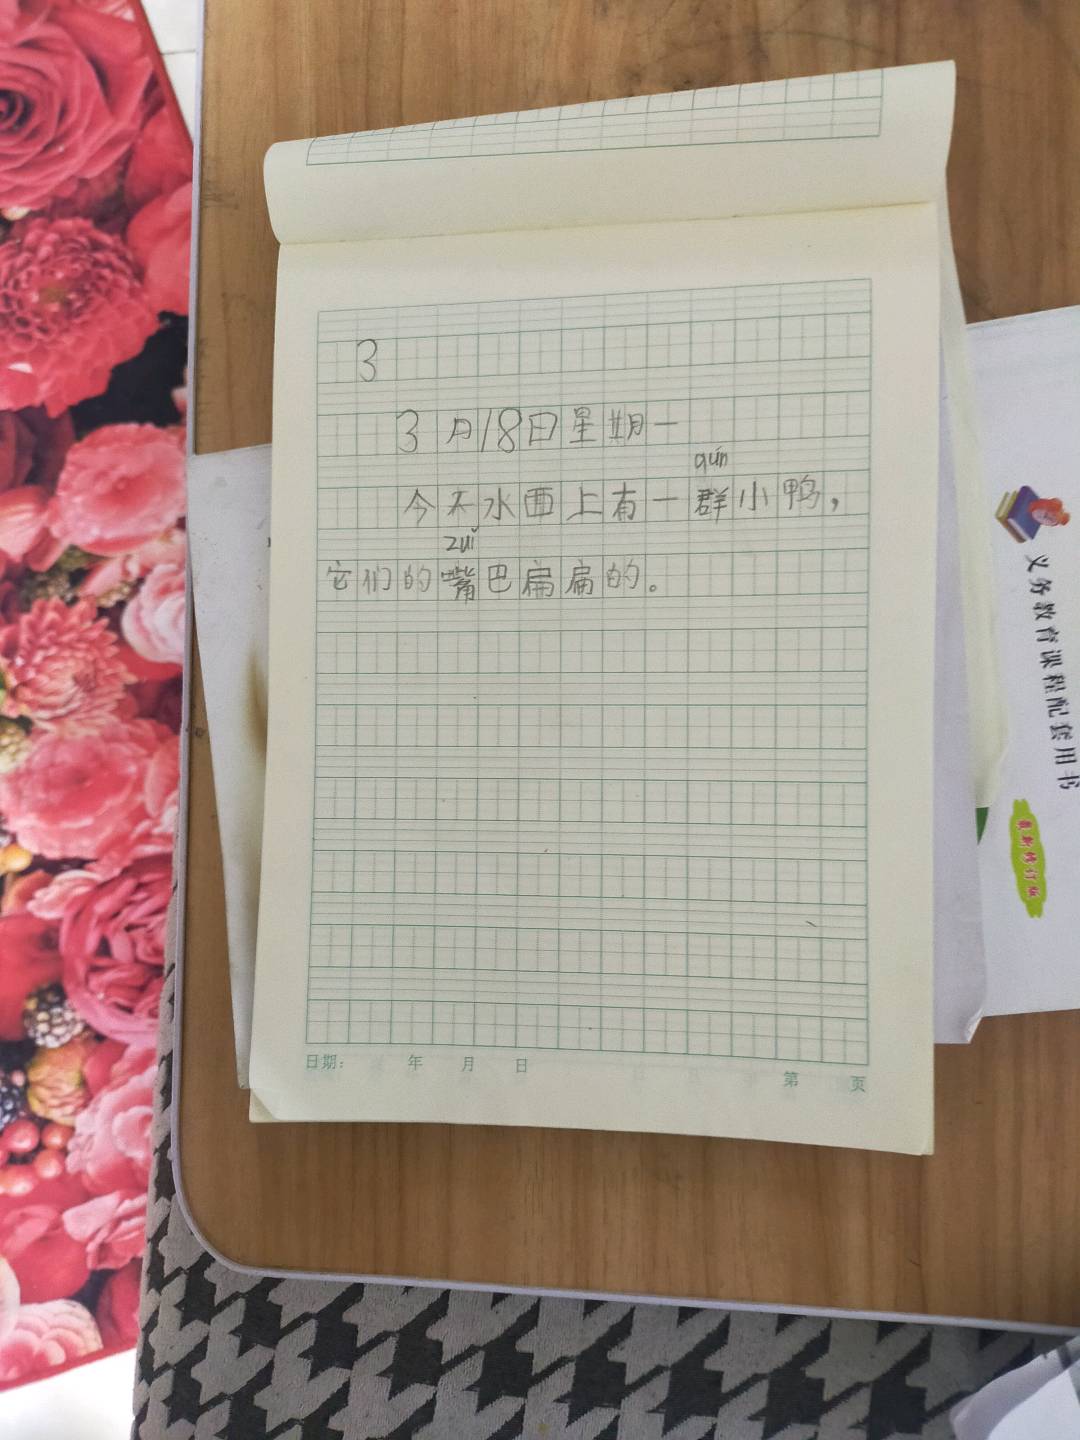 3
3月18日星期一
qún
今天水面上有一群小鸭，
zuǐ
它们的嘴巴扁扁的。
日期： 年 月 日
第 页
义务教育课程配套用书
最新修订版